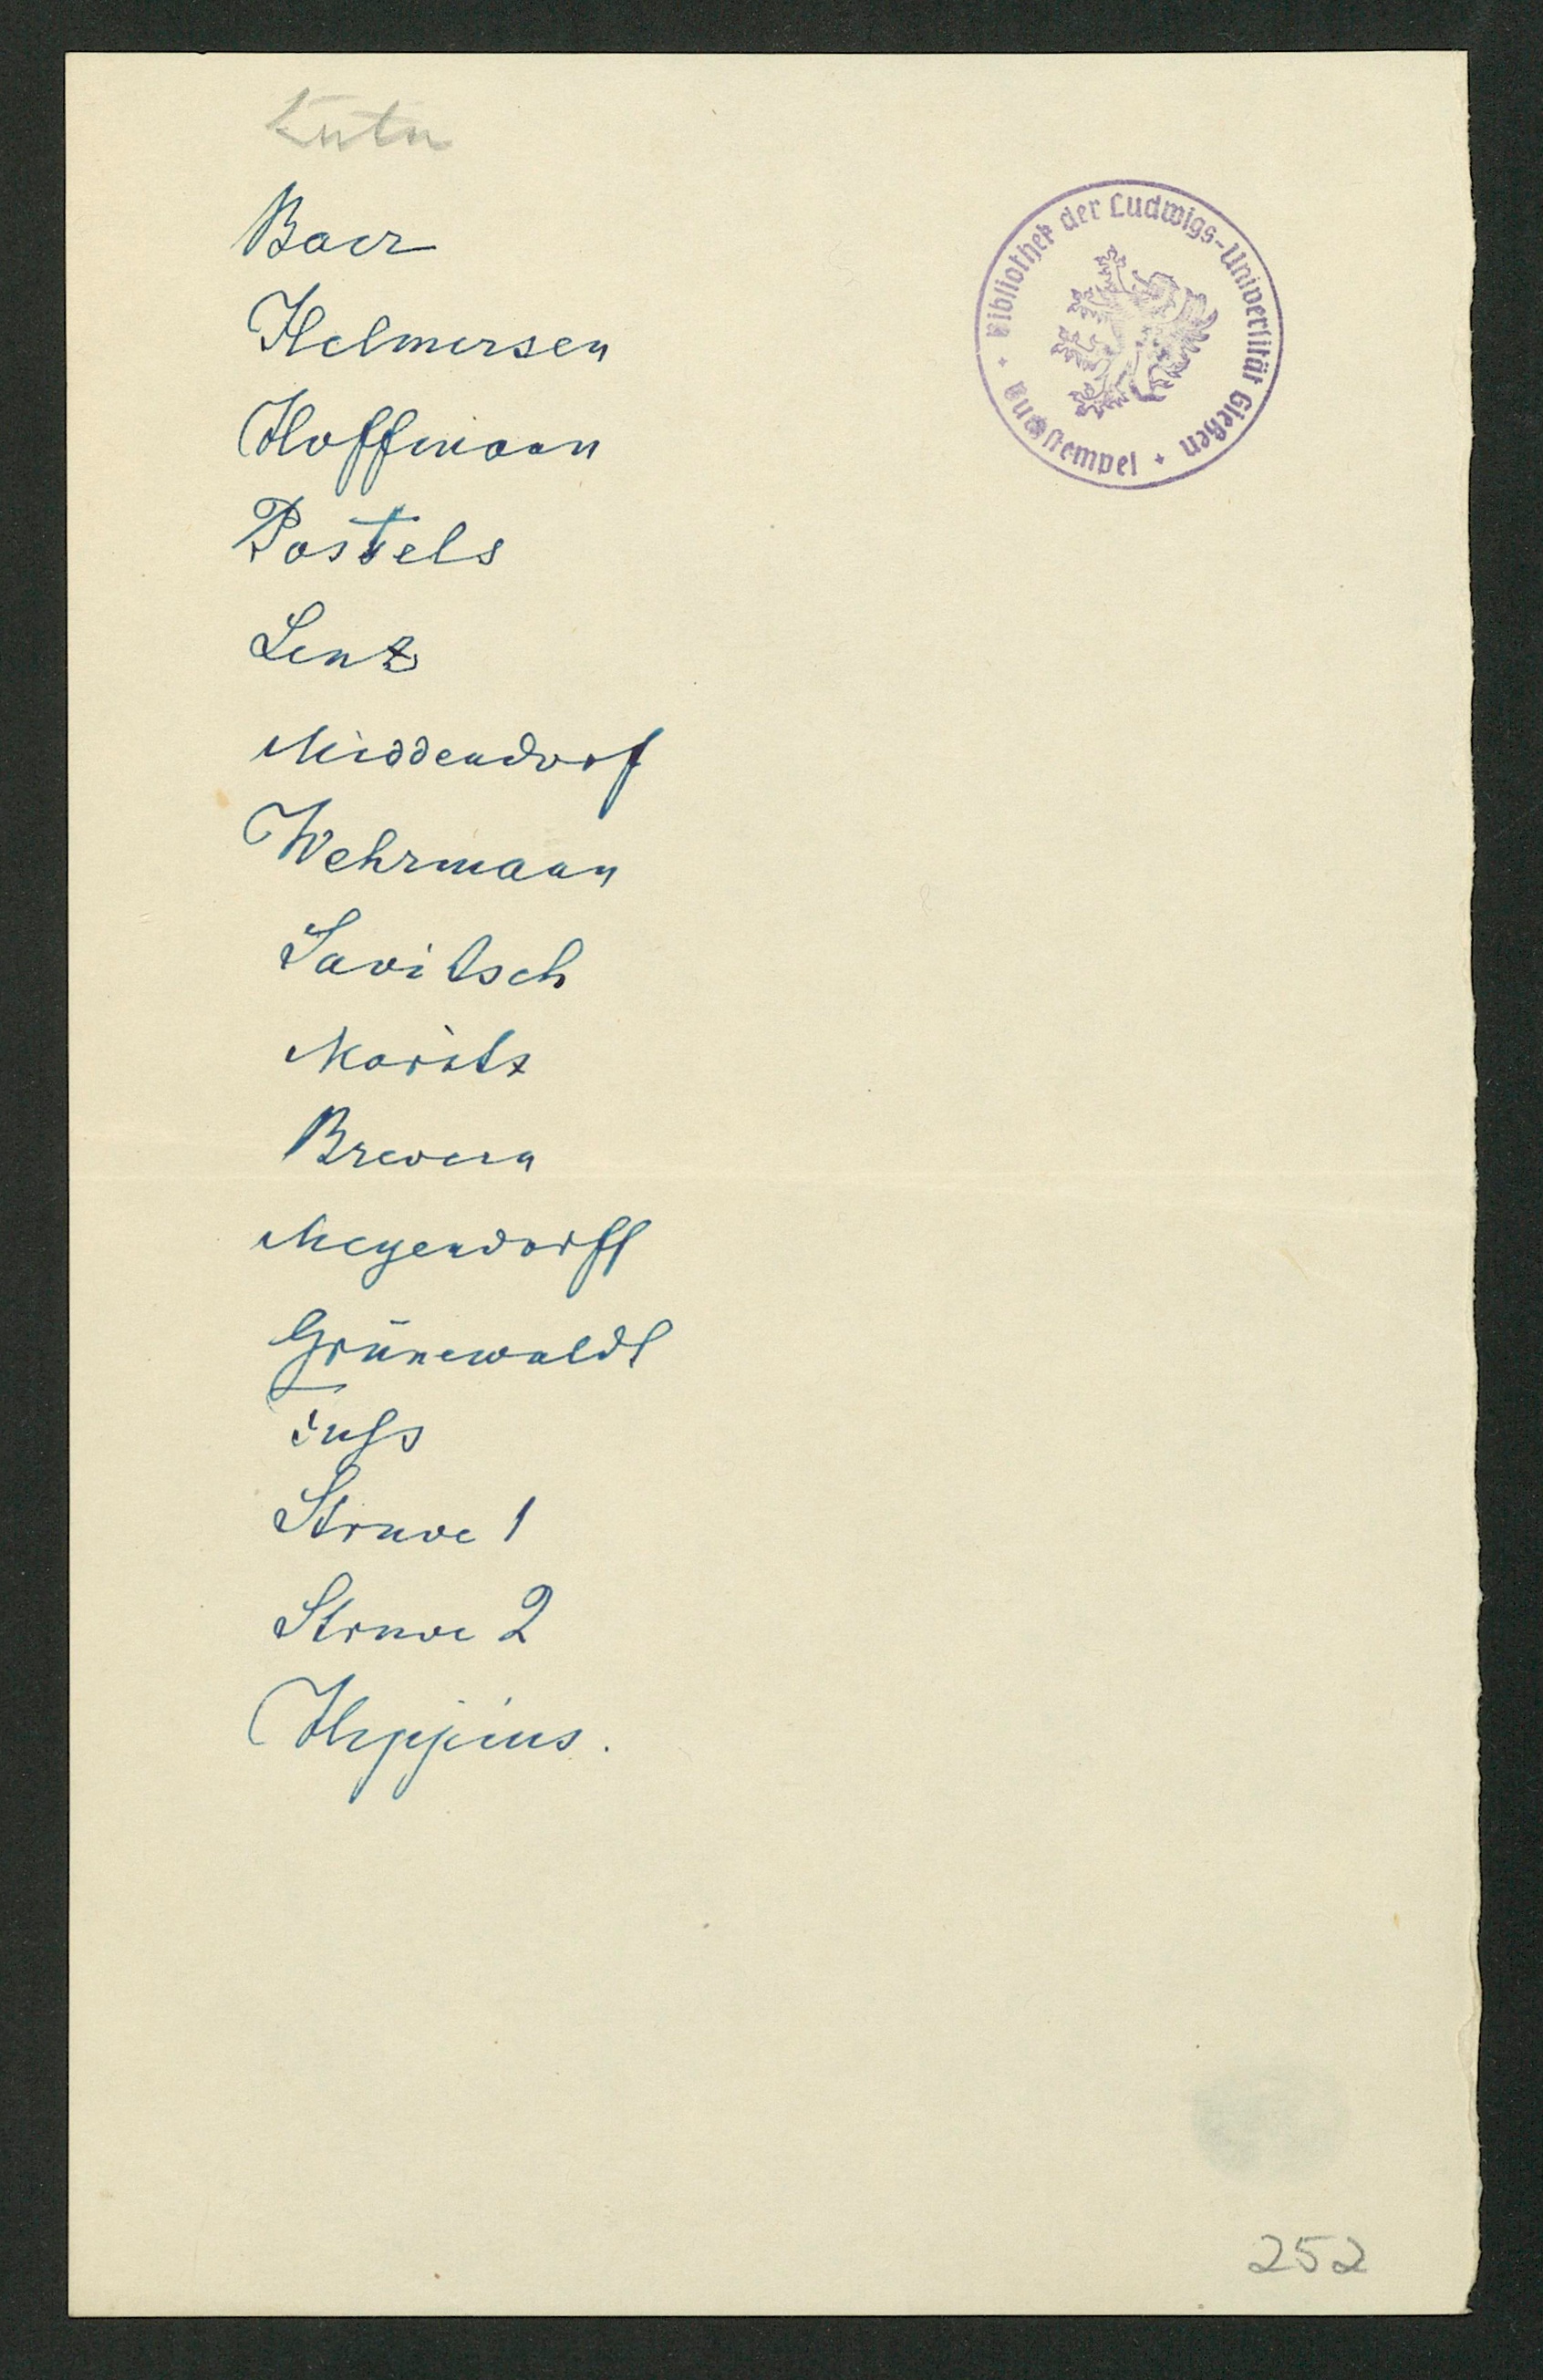 Baer
Helmersen
Hoffmann
Postels
Lenz
Middendorf
Wehrmann
Savitsch
Moritz
Brevern
Meyendorff
Grünewaldt
Fuſs
Struve 1
Struve 2
Hippius.
Bibliothek der Ludwigs-Universität Gießen
Buchstempel
252